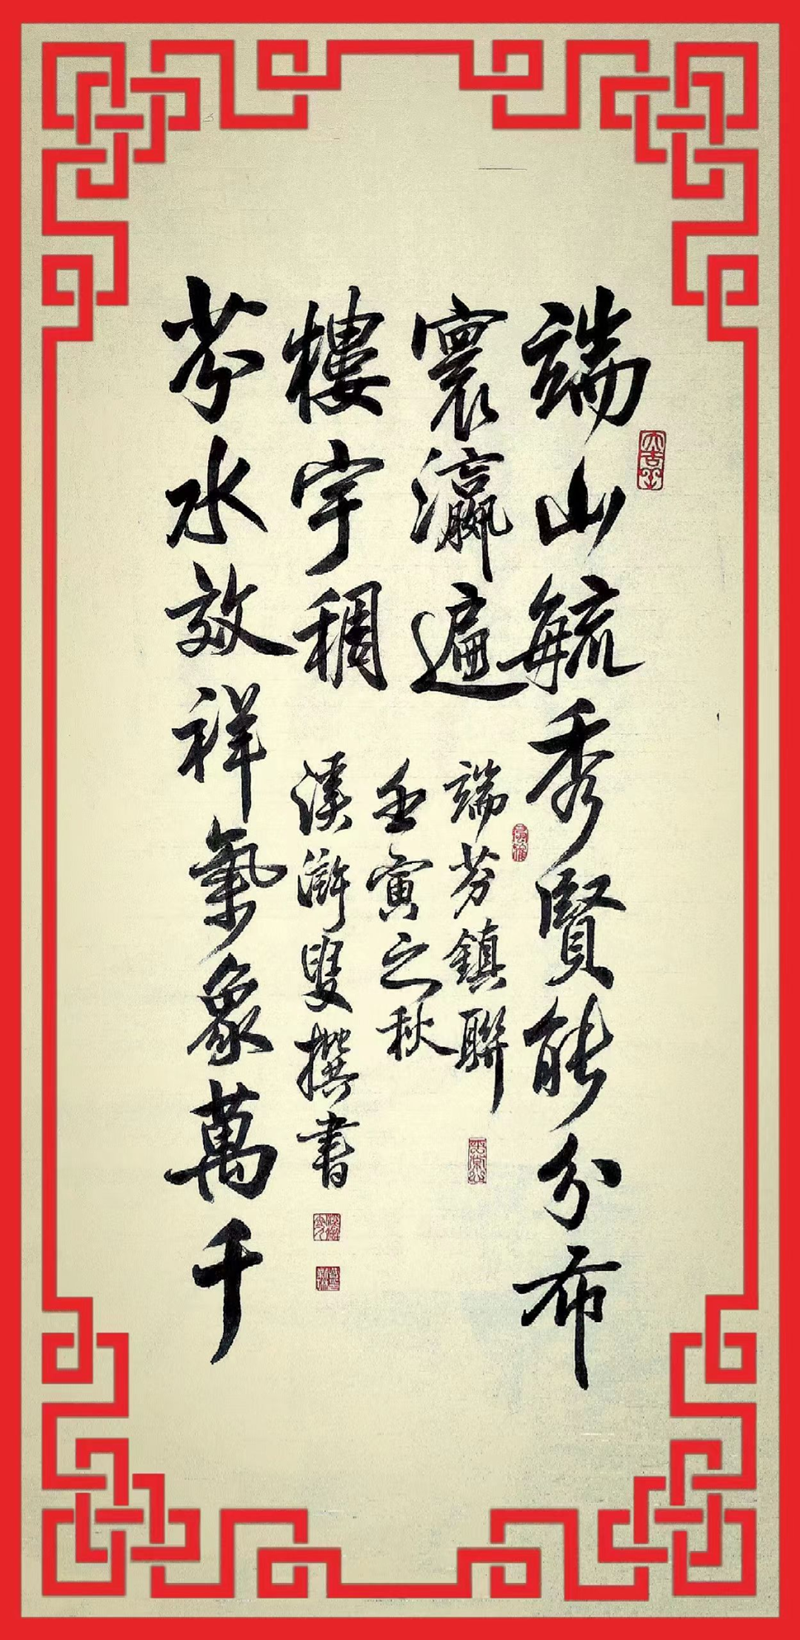 端山毓秀賢能分布
寰瀛遍
芬水效祥氣象萬千
樓宇稠
端芬鎮聯
壬寅之秋
溪滸叟撰書